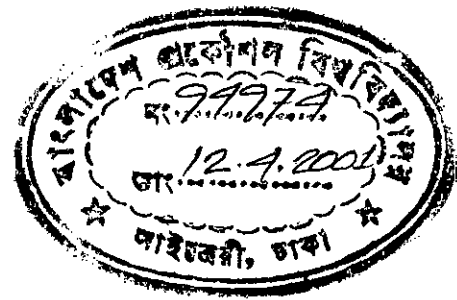 বাংলাদেশ প্রকৌশল বিশ্ববিদ্যালয়
নং. 94974
তাং. 12.4.2001
লাইব্রেরী, ঢাকা